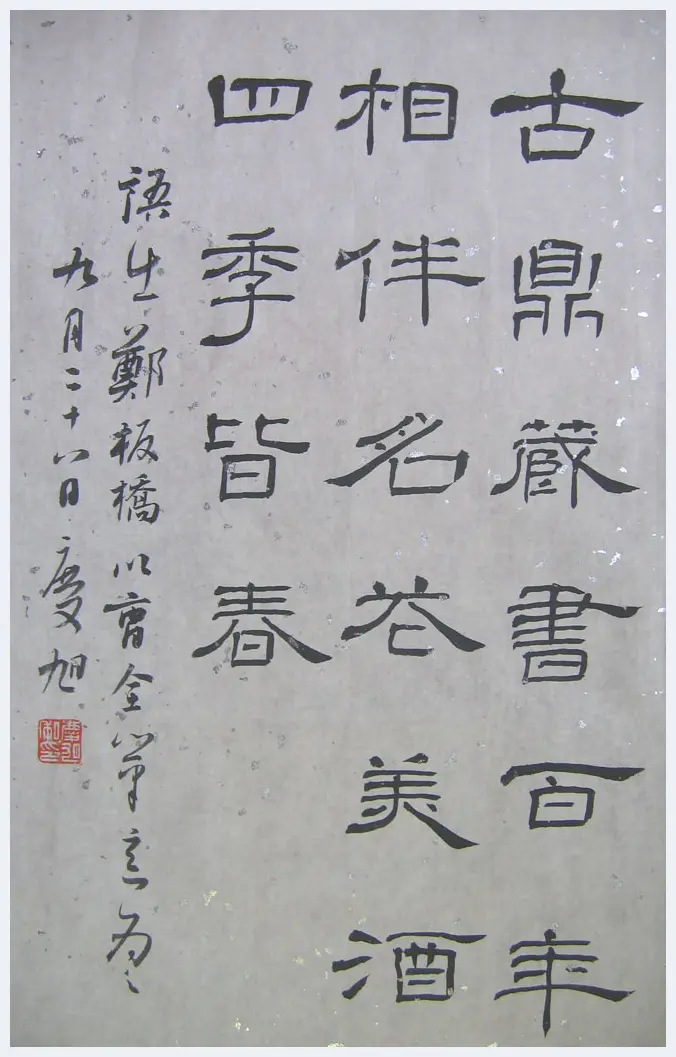 古鼎藏書百年
相伴名花美酒
四季皆春
語出鄭板橋以曹全筆意為之
九月二十八日慶旭